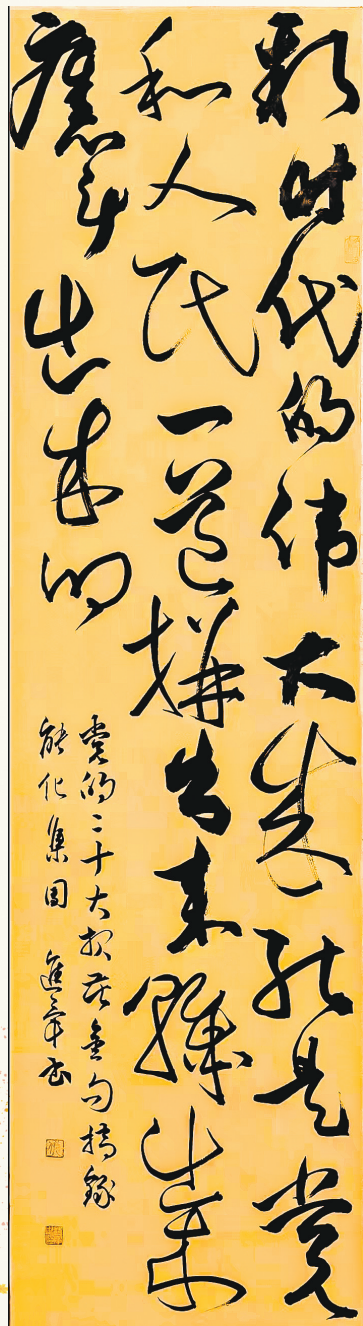 新时代的伟大成就是党
和人民一道拼出来幹出来
斗出来的
党的二十大报告金句摘録
能化集团 進书